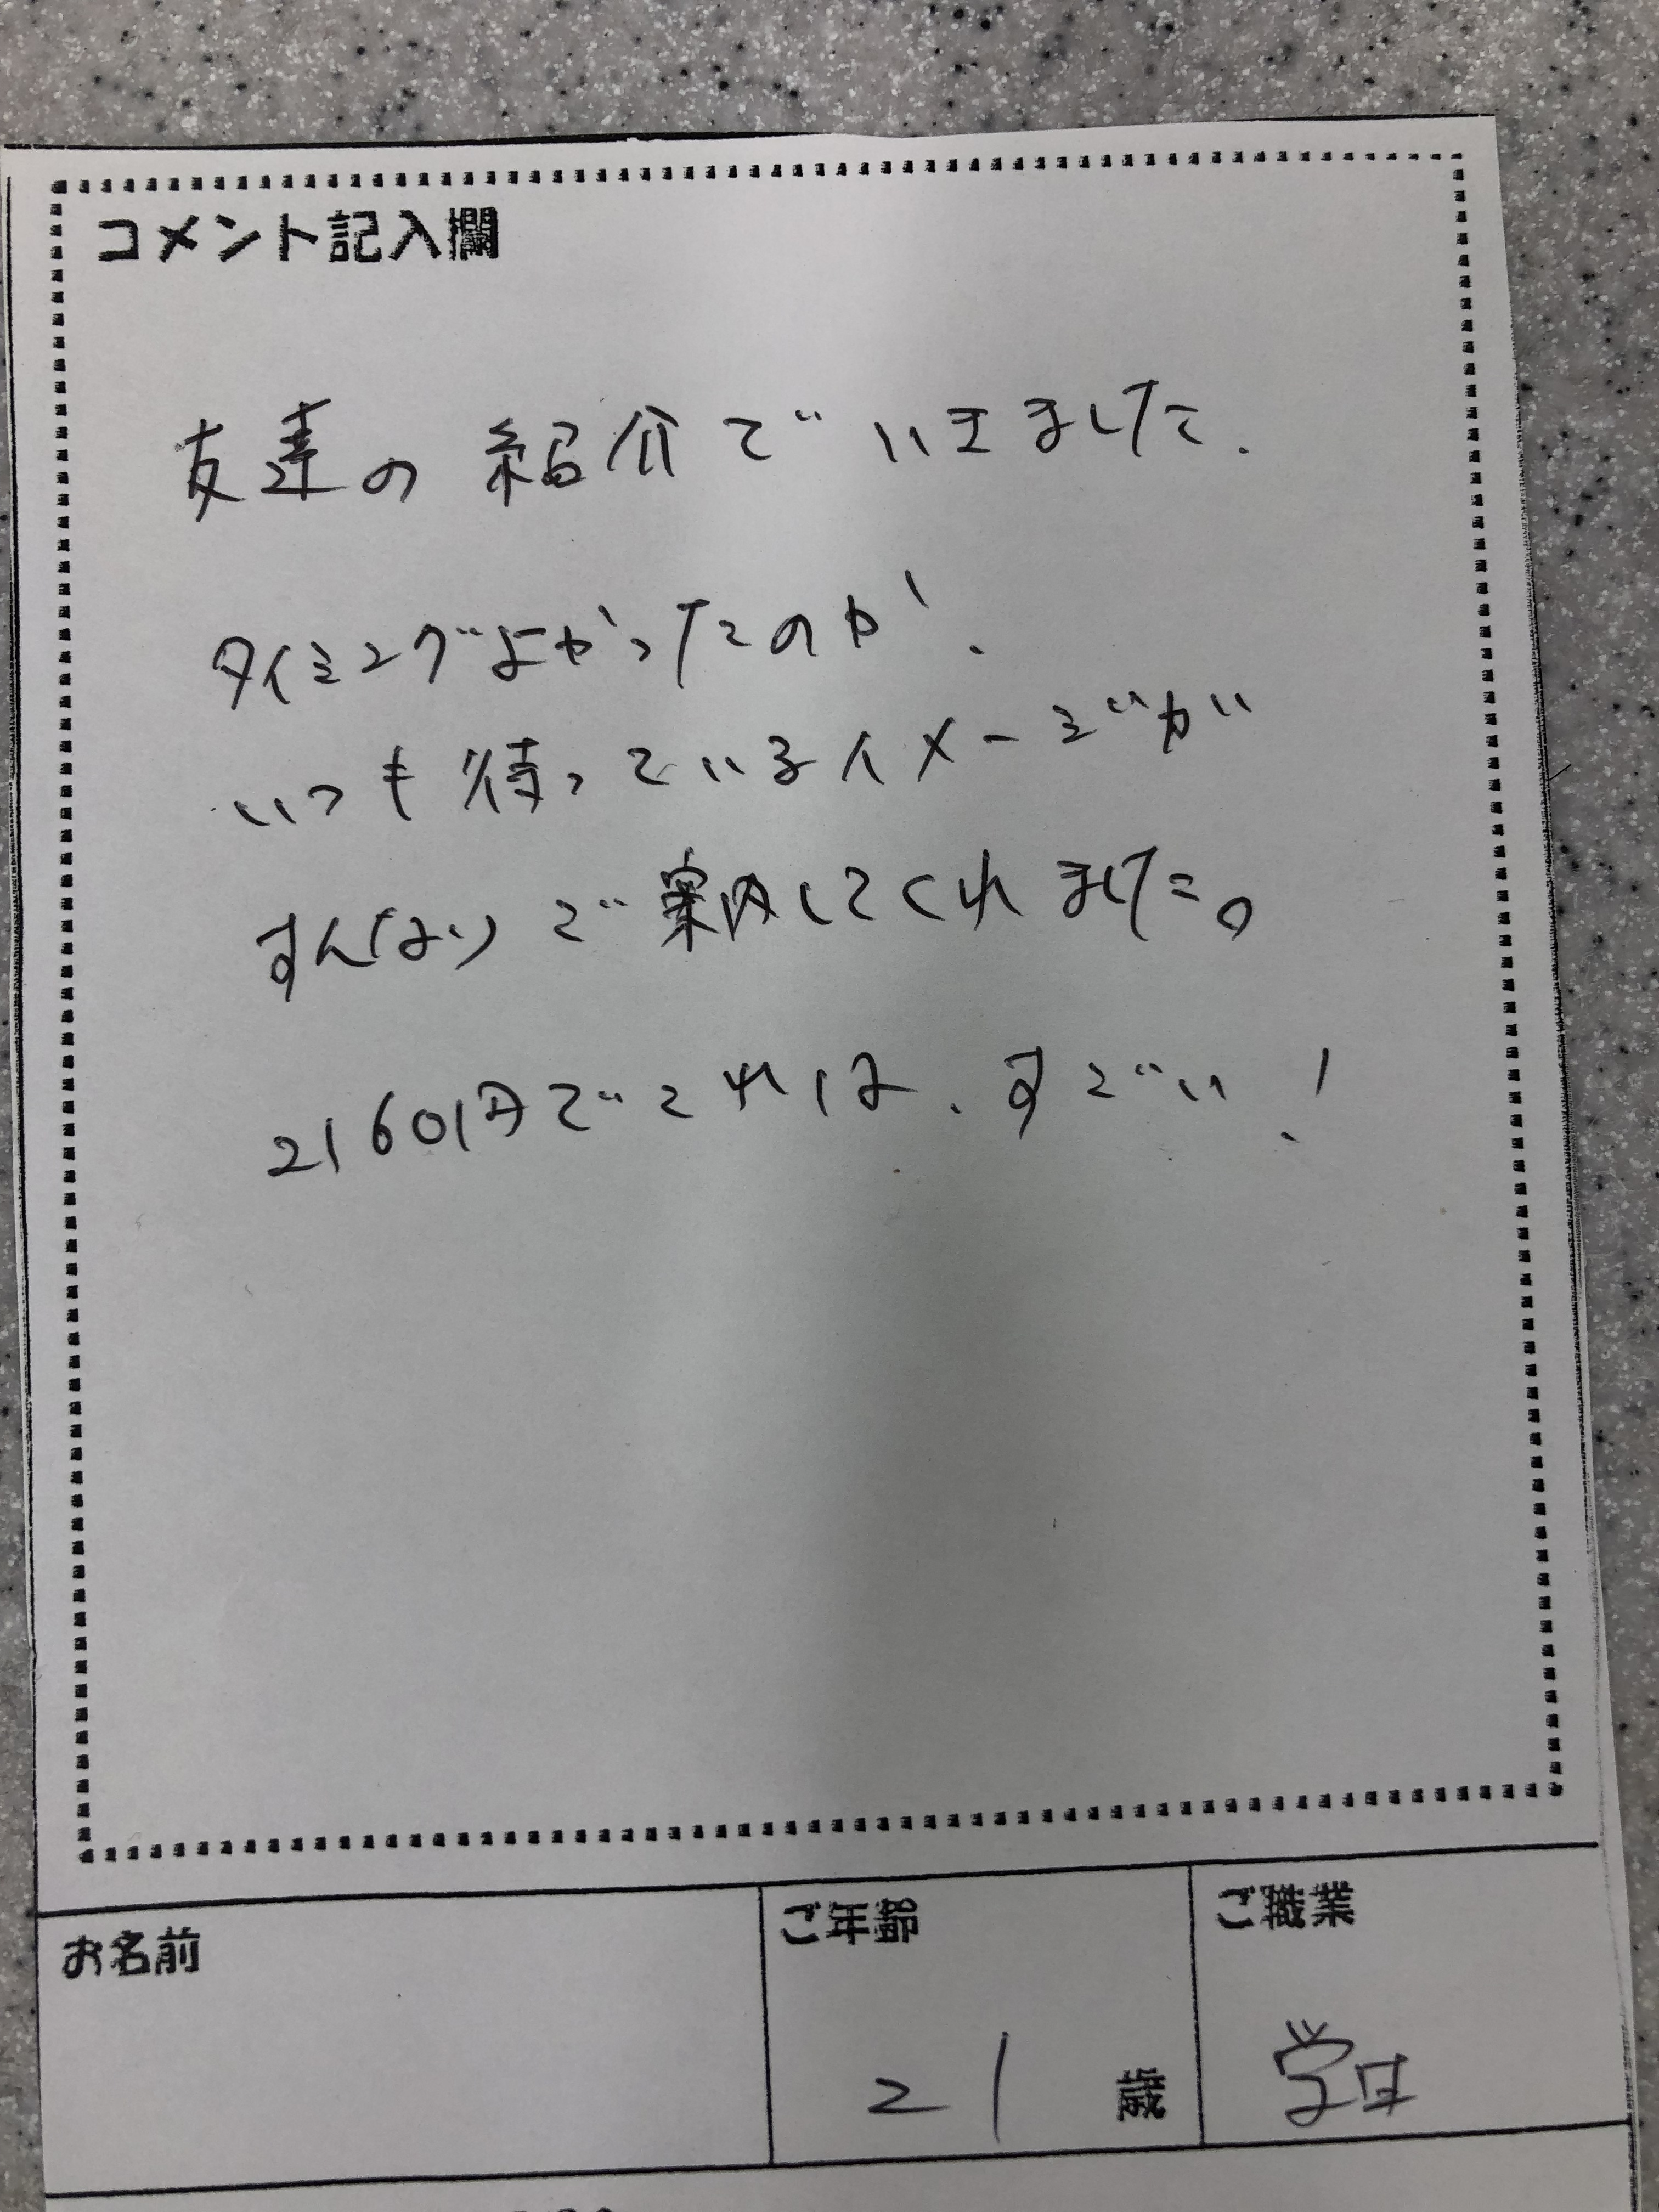 コメント記入欄
友達の紹介でいきました.
タイミングよかったのか!
いつも待っているイメージが
すんなりご案内してくれました。
2160円でこれは、すごい!
お名前
ご年齢
ご職業
21 歳
学生